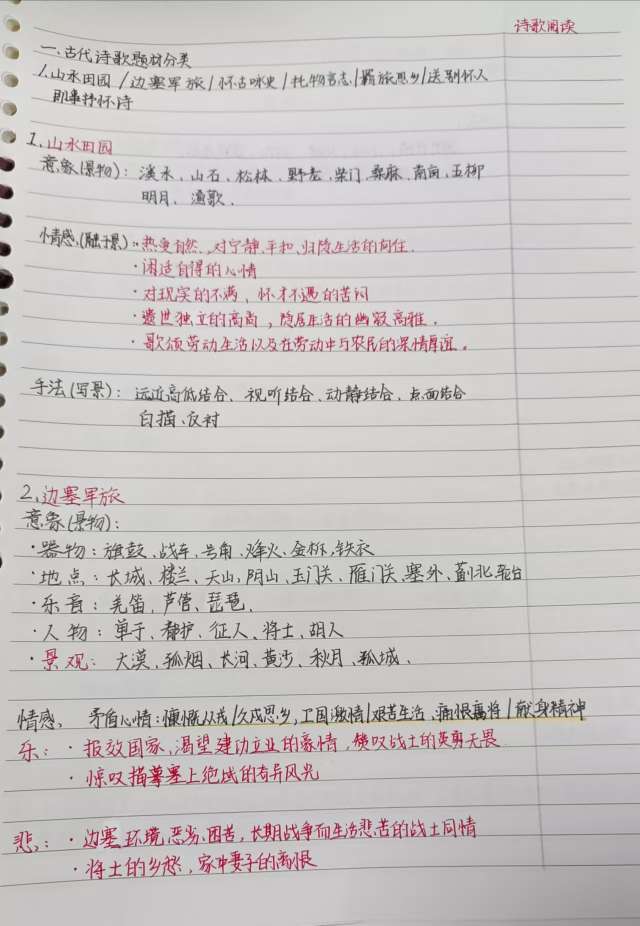 诗歌阅读
一.古代诗歌题材分类
1.山水田园/边塞军旅/怀古咏史/托物言志/羁旅思乡/送别怀人
即事抒怀诗
1.山水田园
意象(景物):溪水、山石、松林、野老、柴门、桑麻、南亩、五柳
明月、渔歌.
情感(融于景):·热爱自然、对宁静、平和、归隐生活的向往.
·闲适自得的心情
·对现实的不满,怀才不遇的苦闷
·遗世独立的高尚,隐居生活的幽寂高雅。
·歌颂劳动生活以及在劳动中与农民的深情厚谊。
手法(写景):远近高低结合、视听结合、动静结合、点面结合
白描、反衬
2.边塞军旅
意象(景物):
·器物:旗鼓、战车、号角、烽火、金柝、铁衣
·地点:长城、楼兰、天山、阴山、玉门关、雁门关、塞外、蓟北、轮台
·乐音:羌笛,芦管、琵琶、
·人物:单于、都护、征人、将士、胡人
·景观:大漠、孤烟、长河、黄沙、秋月、孤城、
情感、矛盾心情:慷慨从戎/久戍思乡,卫国激情/艰苦生活、痛恨庸将/献身精神
乐:·报效国家,渴望建功立业的豪情,赞叹战士的英勇无畏
·惊叹描摹塞上绝域的奇异风光
悲:·边塞环境恶劣、困苦,长期战争而生活悲苦的战士同情
·将士的乡愁,家中妻子的离恨